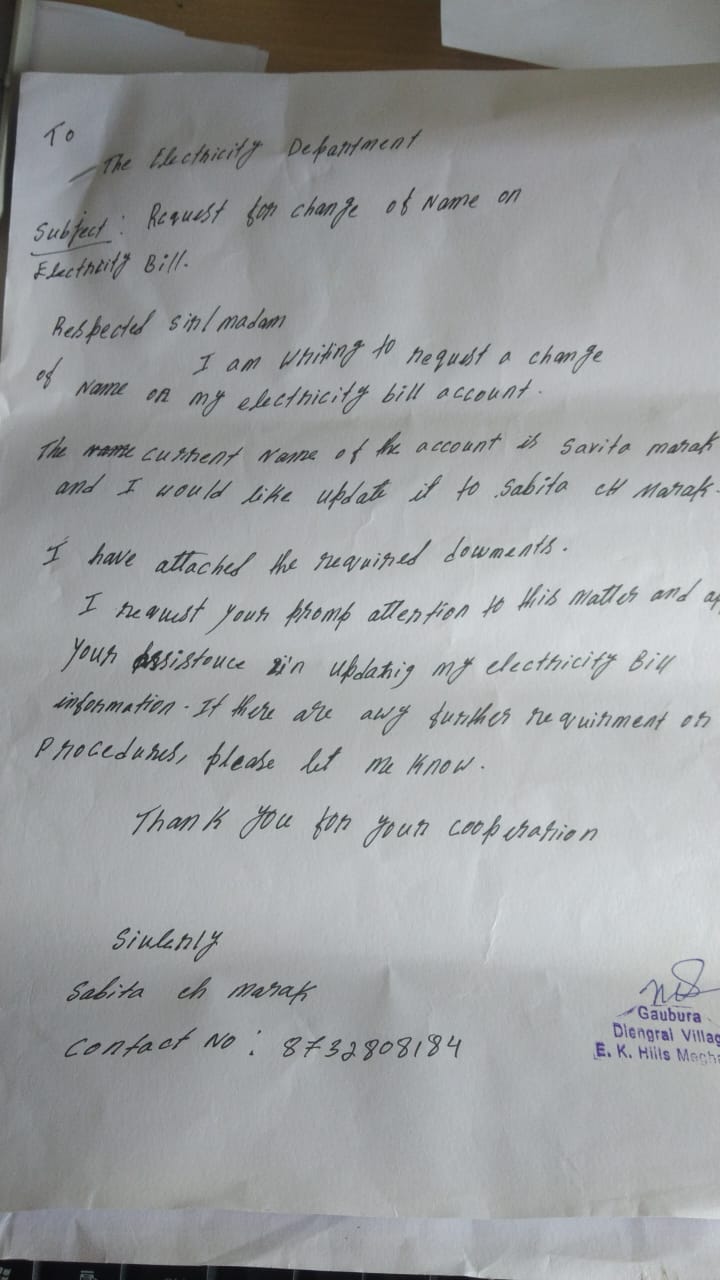 To
The Electricity Department
Subject: Request for change of Name on
Electricity Bill.
Respected sir/madam
I am writing to request a change
of Name on my electricity bill account.
The current Name of the account is Savita marak
and I would like update it to Sabita ch Marak.
I have attached the required documents.
I request your promp attention to this matter and ap
your Assistance in updating my electricity Bill
information. If there are any further requirment or
Procedures, please let me know.
Thank you for your cooperation
Sincerly
Sabita ch marak
Contact No : 8732808184
Gaubura
Diengral Villag
E. K. Hills Megha